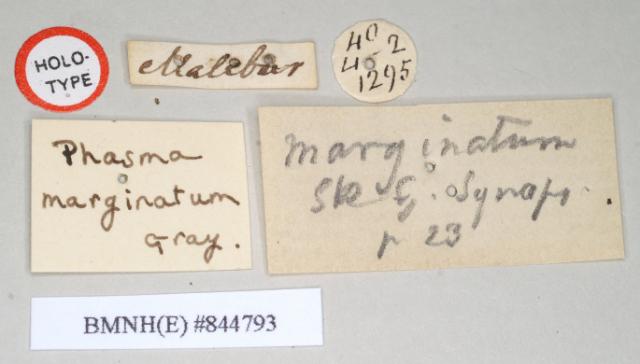 HOLO-
TYPE
Malebar
40
4-2
1295
Phasma
marginatum
Gray.
marginatum
G. Synops.
p 23
BMNH(E) #844793